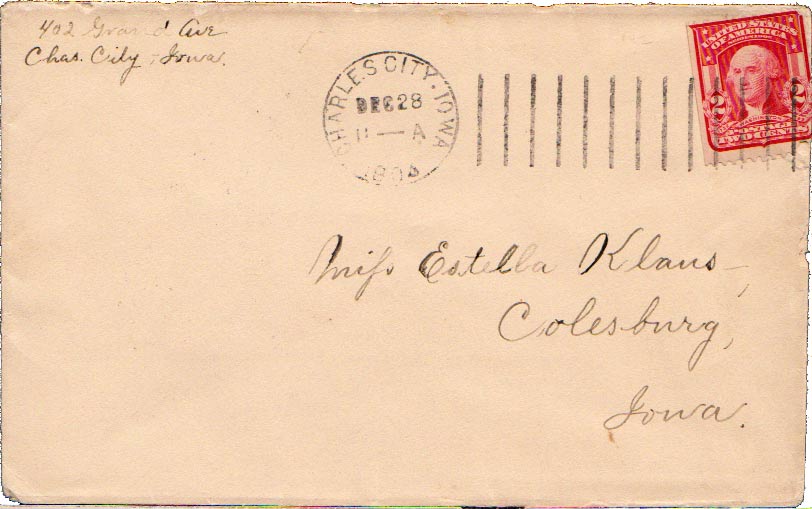 402 Grand Ave
Chas. City, Iowa.
CHARLES CITY, IOWA
DEC 28
11 — A
1904
UNITED STATES
OF AMERICA
2 2
WASHINGTON
POSTAGE
TWO CENTS
Miss Estella Klaus,
Colesburg,
Iowa.